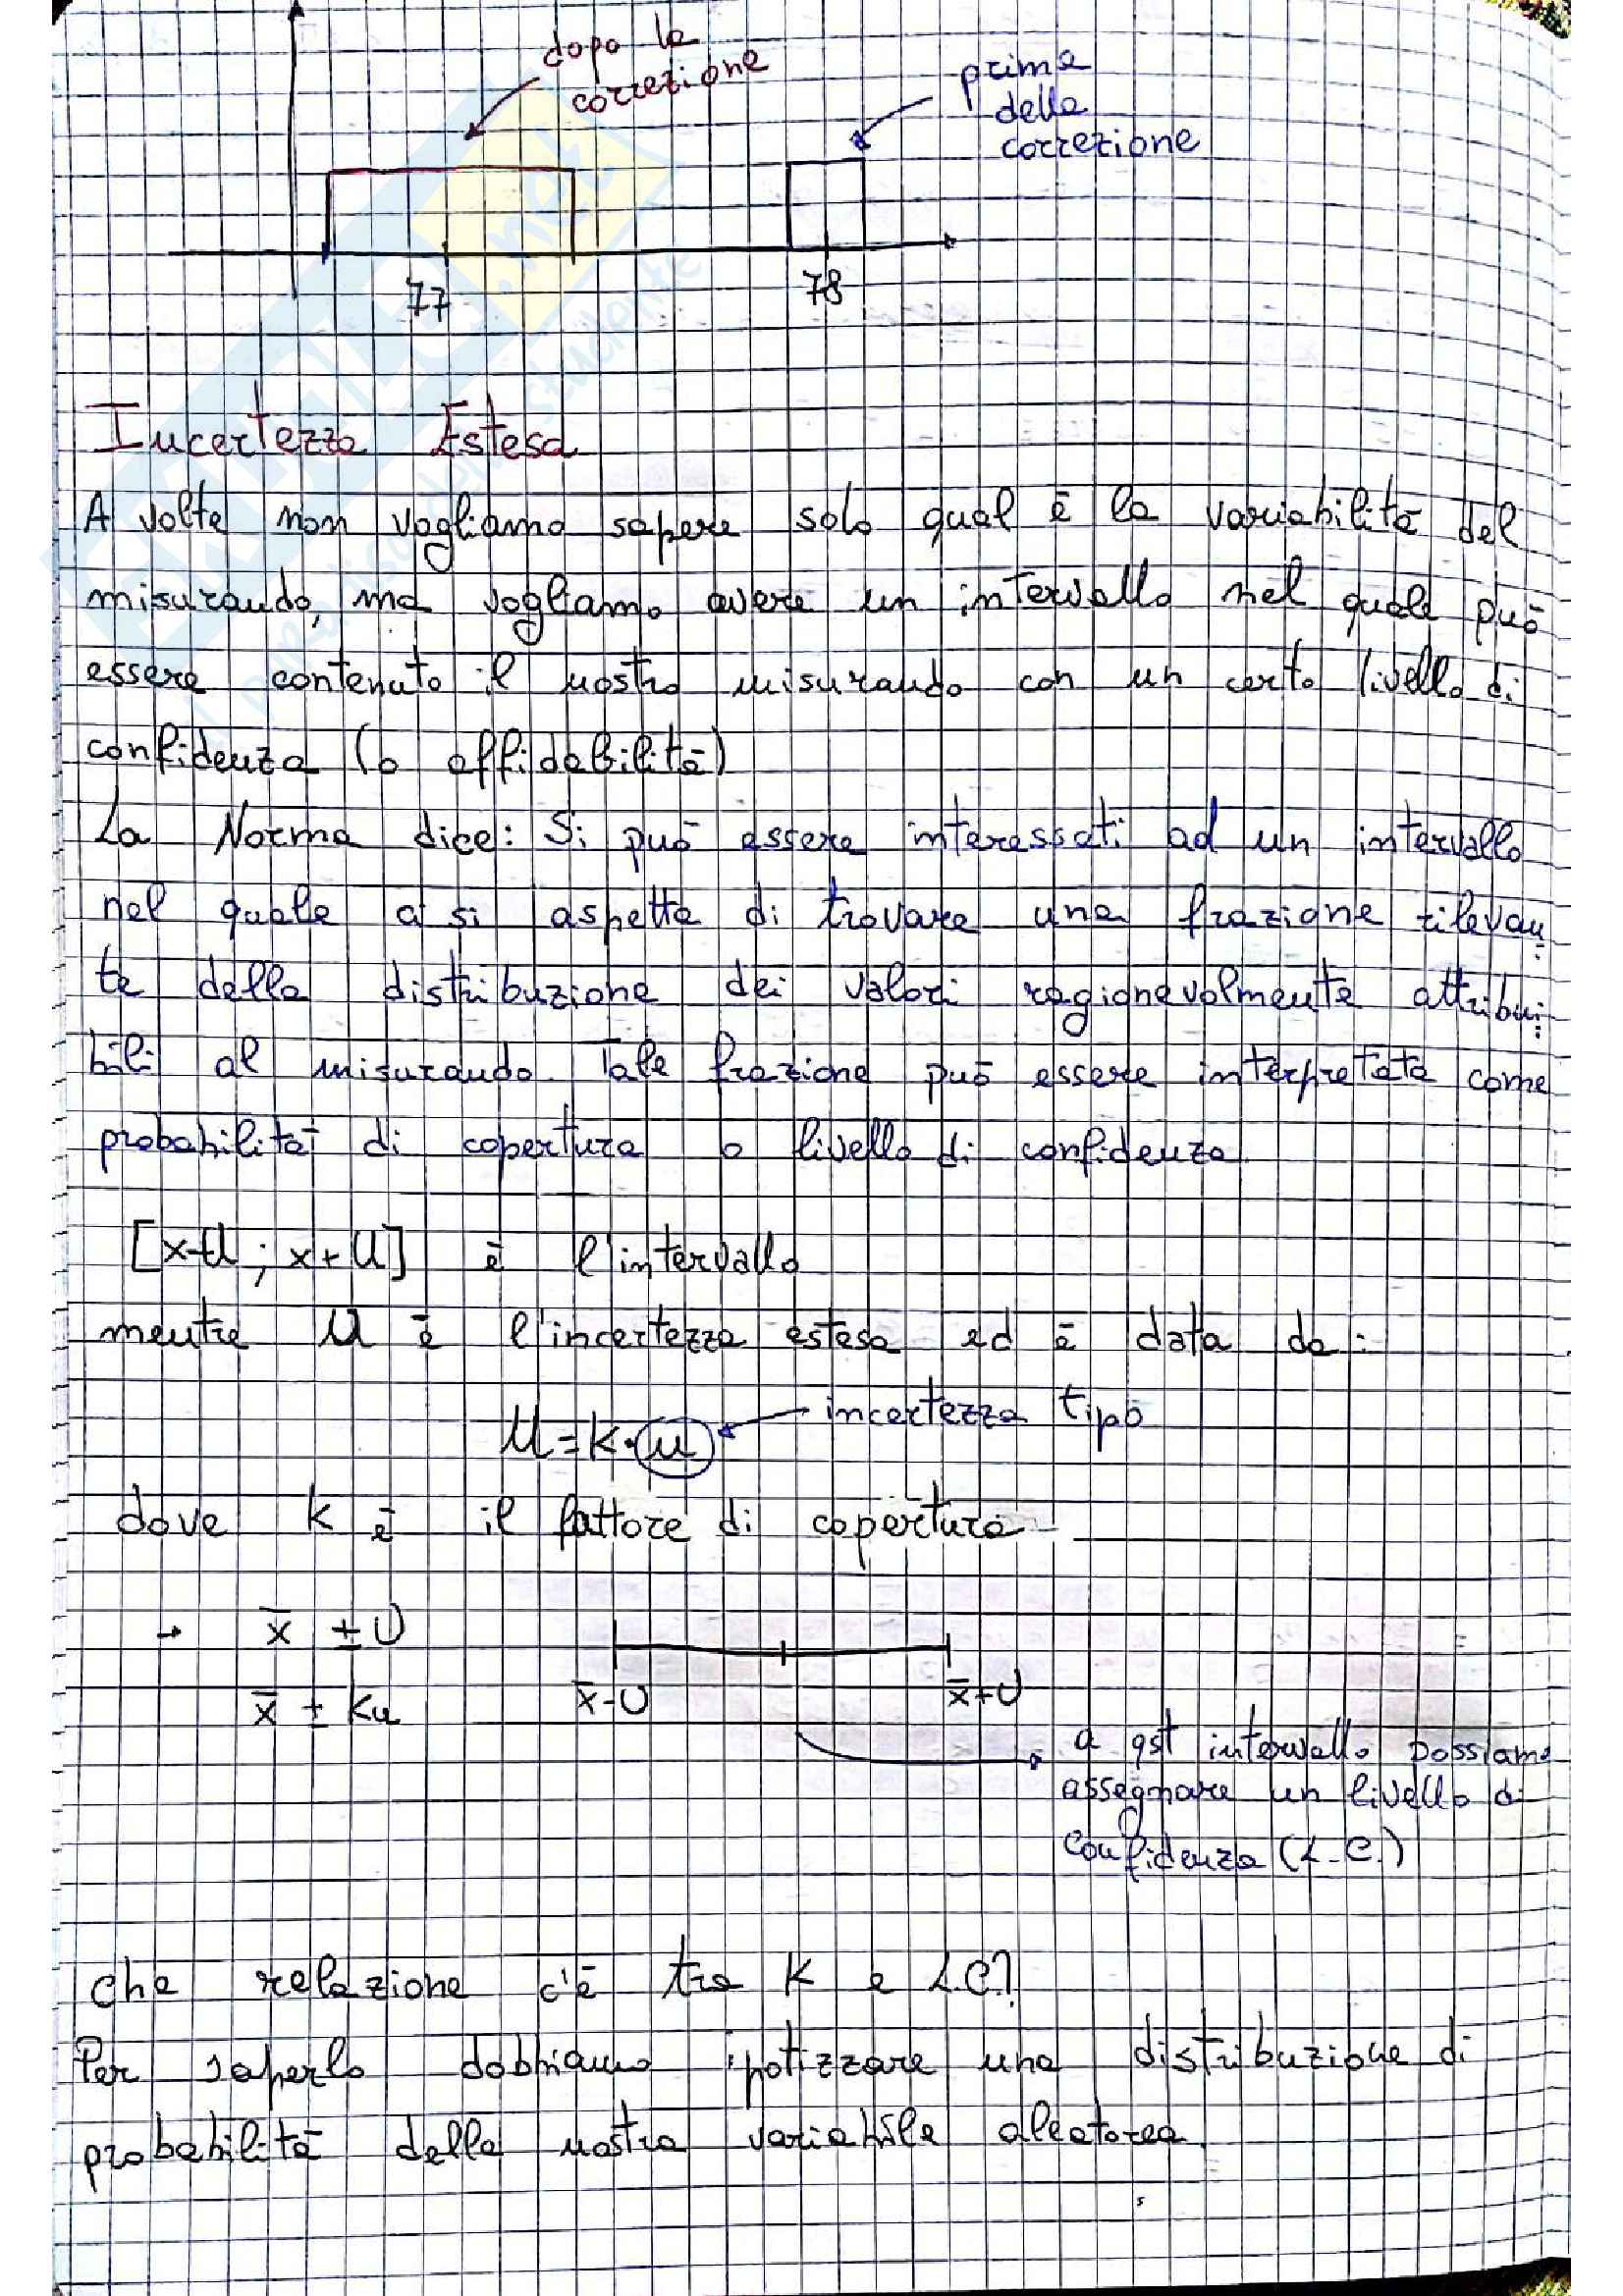 dopo la
correzione
prima
della
correzione
77
78
Incertezza Estesa
A volte non vogliamo sapere solo qual è la variabilità del
misurando, ma vogliamo avere un intervallo nel quale può
essere contenuto il nostro misurando con un certo livello di
confidenza (o affidabilità)
La Norma dice: Si può essere interessati ad un intervallo
nel quale ci si aspetta di trovare una frazione rilevan
te della distribuzione dei valori ragionevolmente attribui
bili al misurando. Tale frazione può essere interpretata come
probabilità di copertura o livello di confidenza.
[x-U ; x+U] è l'intervallo
mentre U è l'incertezza estesa ed è data da:
U = k·u ← incertezza tipo
dove k è il fattore di copertura
→ x̄ ± U
x̄ ± ku
x̄-U
x̄+U
a qst intervallo possiamo
assegnare un livello di
confidenza (L.C.)
che relazione c'è tra K e L.C.?
Per saperlo dobbiamo ipotizzare una distribuzione di
probabilità della nostra variabile aleatorea.